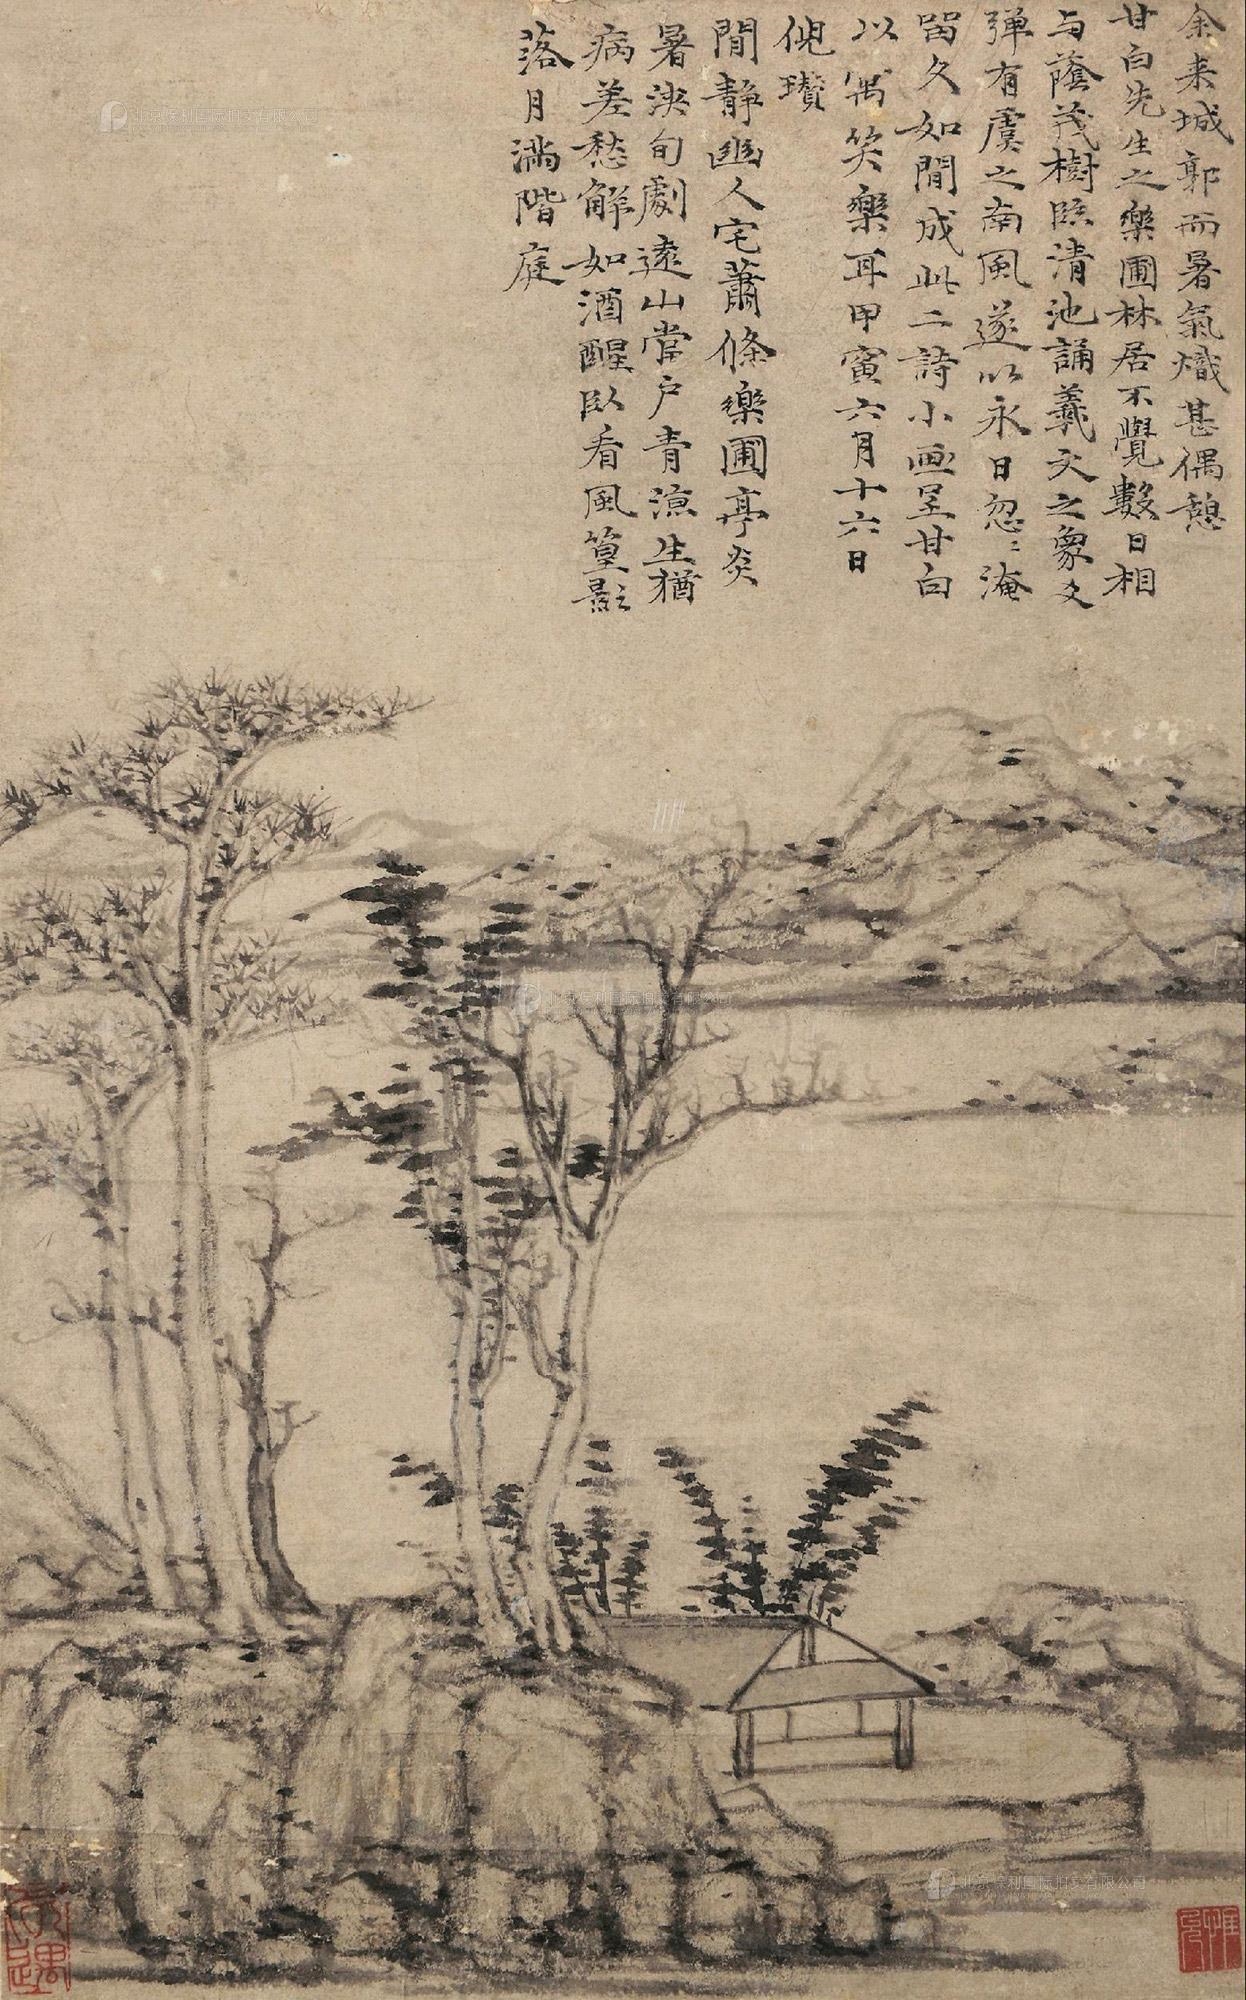 余来城郭而暑氣熾甚偶憩
甘白先生之樂圃林居不覺數日相
与蔭茂樹臨清池誦羲文之象爻
弹有虞之南風遂以永日忽〻淹
留久如閒成此二詩小畫呈甘白
以寓笑樂耳甲寅六月十六日
倪瓚
閒靜幽人宅蕭條樂圃亭炎
暑浹旬劇遠山當户青涼生猶
病差愁解如酒醒臥看風篁影
落月满階庭
北京保利国际拍卖有限公司
北京保利国际拍卖有限公司
北京保利国际拍卖有限公司